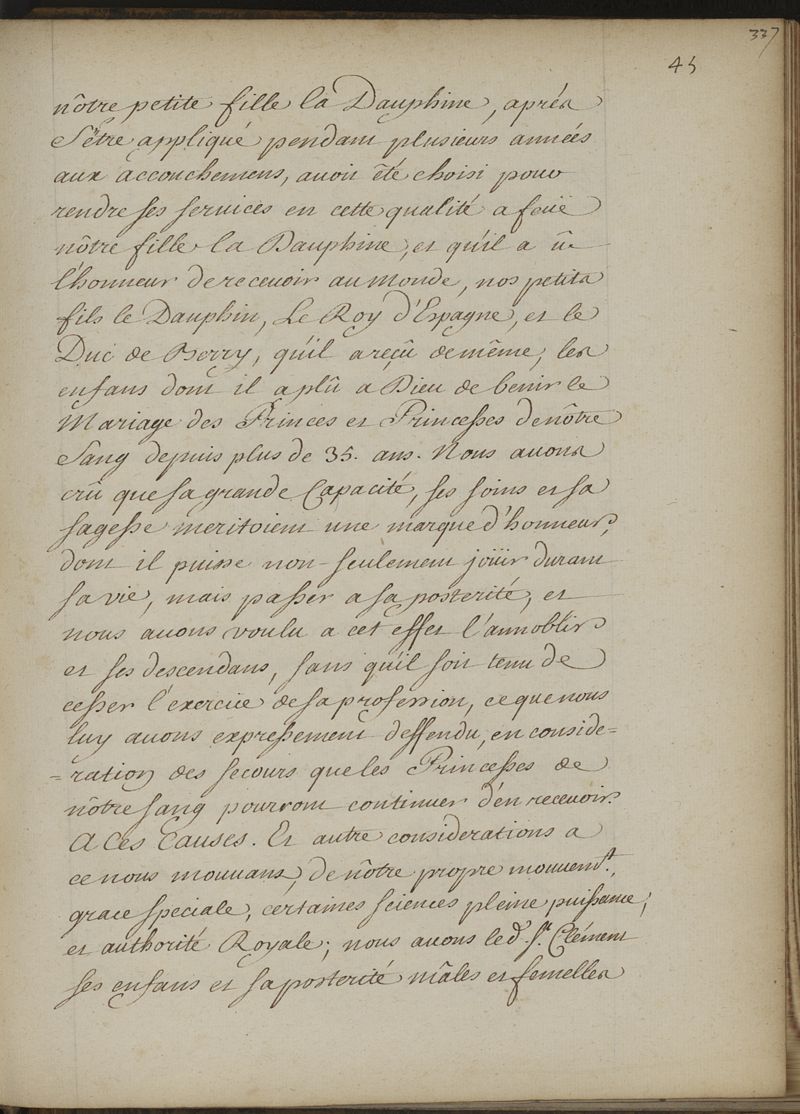 337
45
nôtre petite fille la Dauphine, aprés
s'être appliqué pendant plusieurs années
aux accouchemens, auoit êté choisi pour
rendre ses seruices en cette qualité a feüe
nôtre fille la Dauphine, et qu'il a û
l'honneur de receuoir au monde, nos petits
fils le Dauphin, Le Roy d'Espagne, et le
Duc de Berry, qu'il a reçû de même, les
enfans dont il a plû a Dieu de benir le
Mariage des Princes et Princesses de nôtre
Sang depuis plus de 35. ans. Nous auons
crû que sa grande Capacité, ses soins et sa
sagesse meritoient une marque d'honneur,
dont il puisse non-seulement joüir durant
sa vie, mais passer a sa posterité, et
nous auons voulu a cet effet l'annoblir
et ses descendans, sans qu'il soit tenu de
cesser l'exercice de sa profession, ce que nous
luy auons expressement deffendu, en conside=
=ration des secours que les Princesses de
nôtre sang pourront continuer d'en receuoir.
A Ces Causes. Et autre considerations a
ce nous mouuans, de nôtre propre mouuem.t,
grace speciale, certaines sciences pleine puissance,
et authorité Royale; nous auons le d. Sr. Clément
ses enfans et sa posterité mâles et femelles